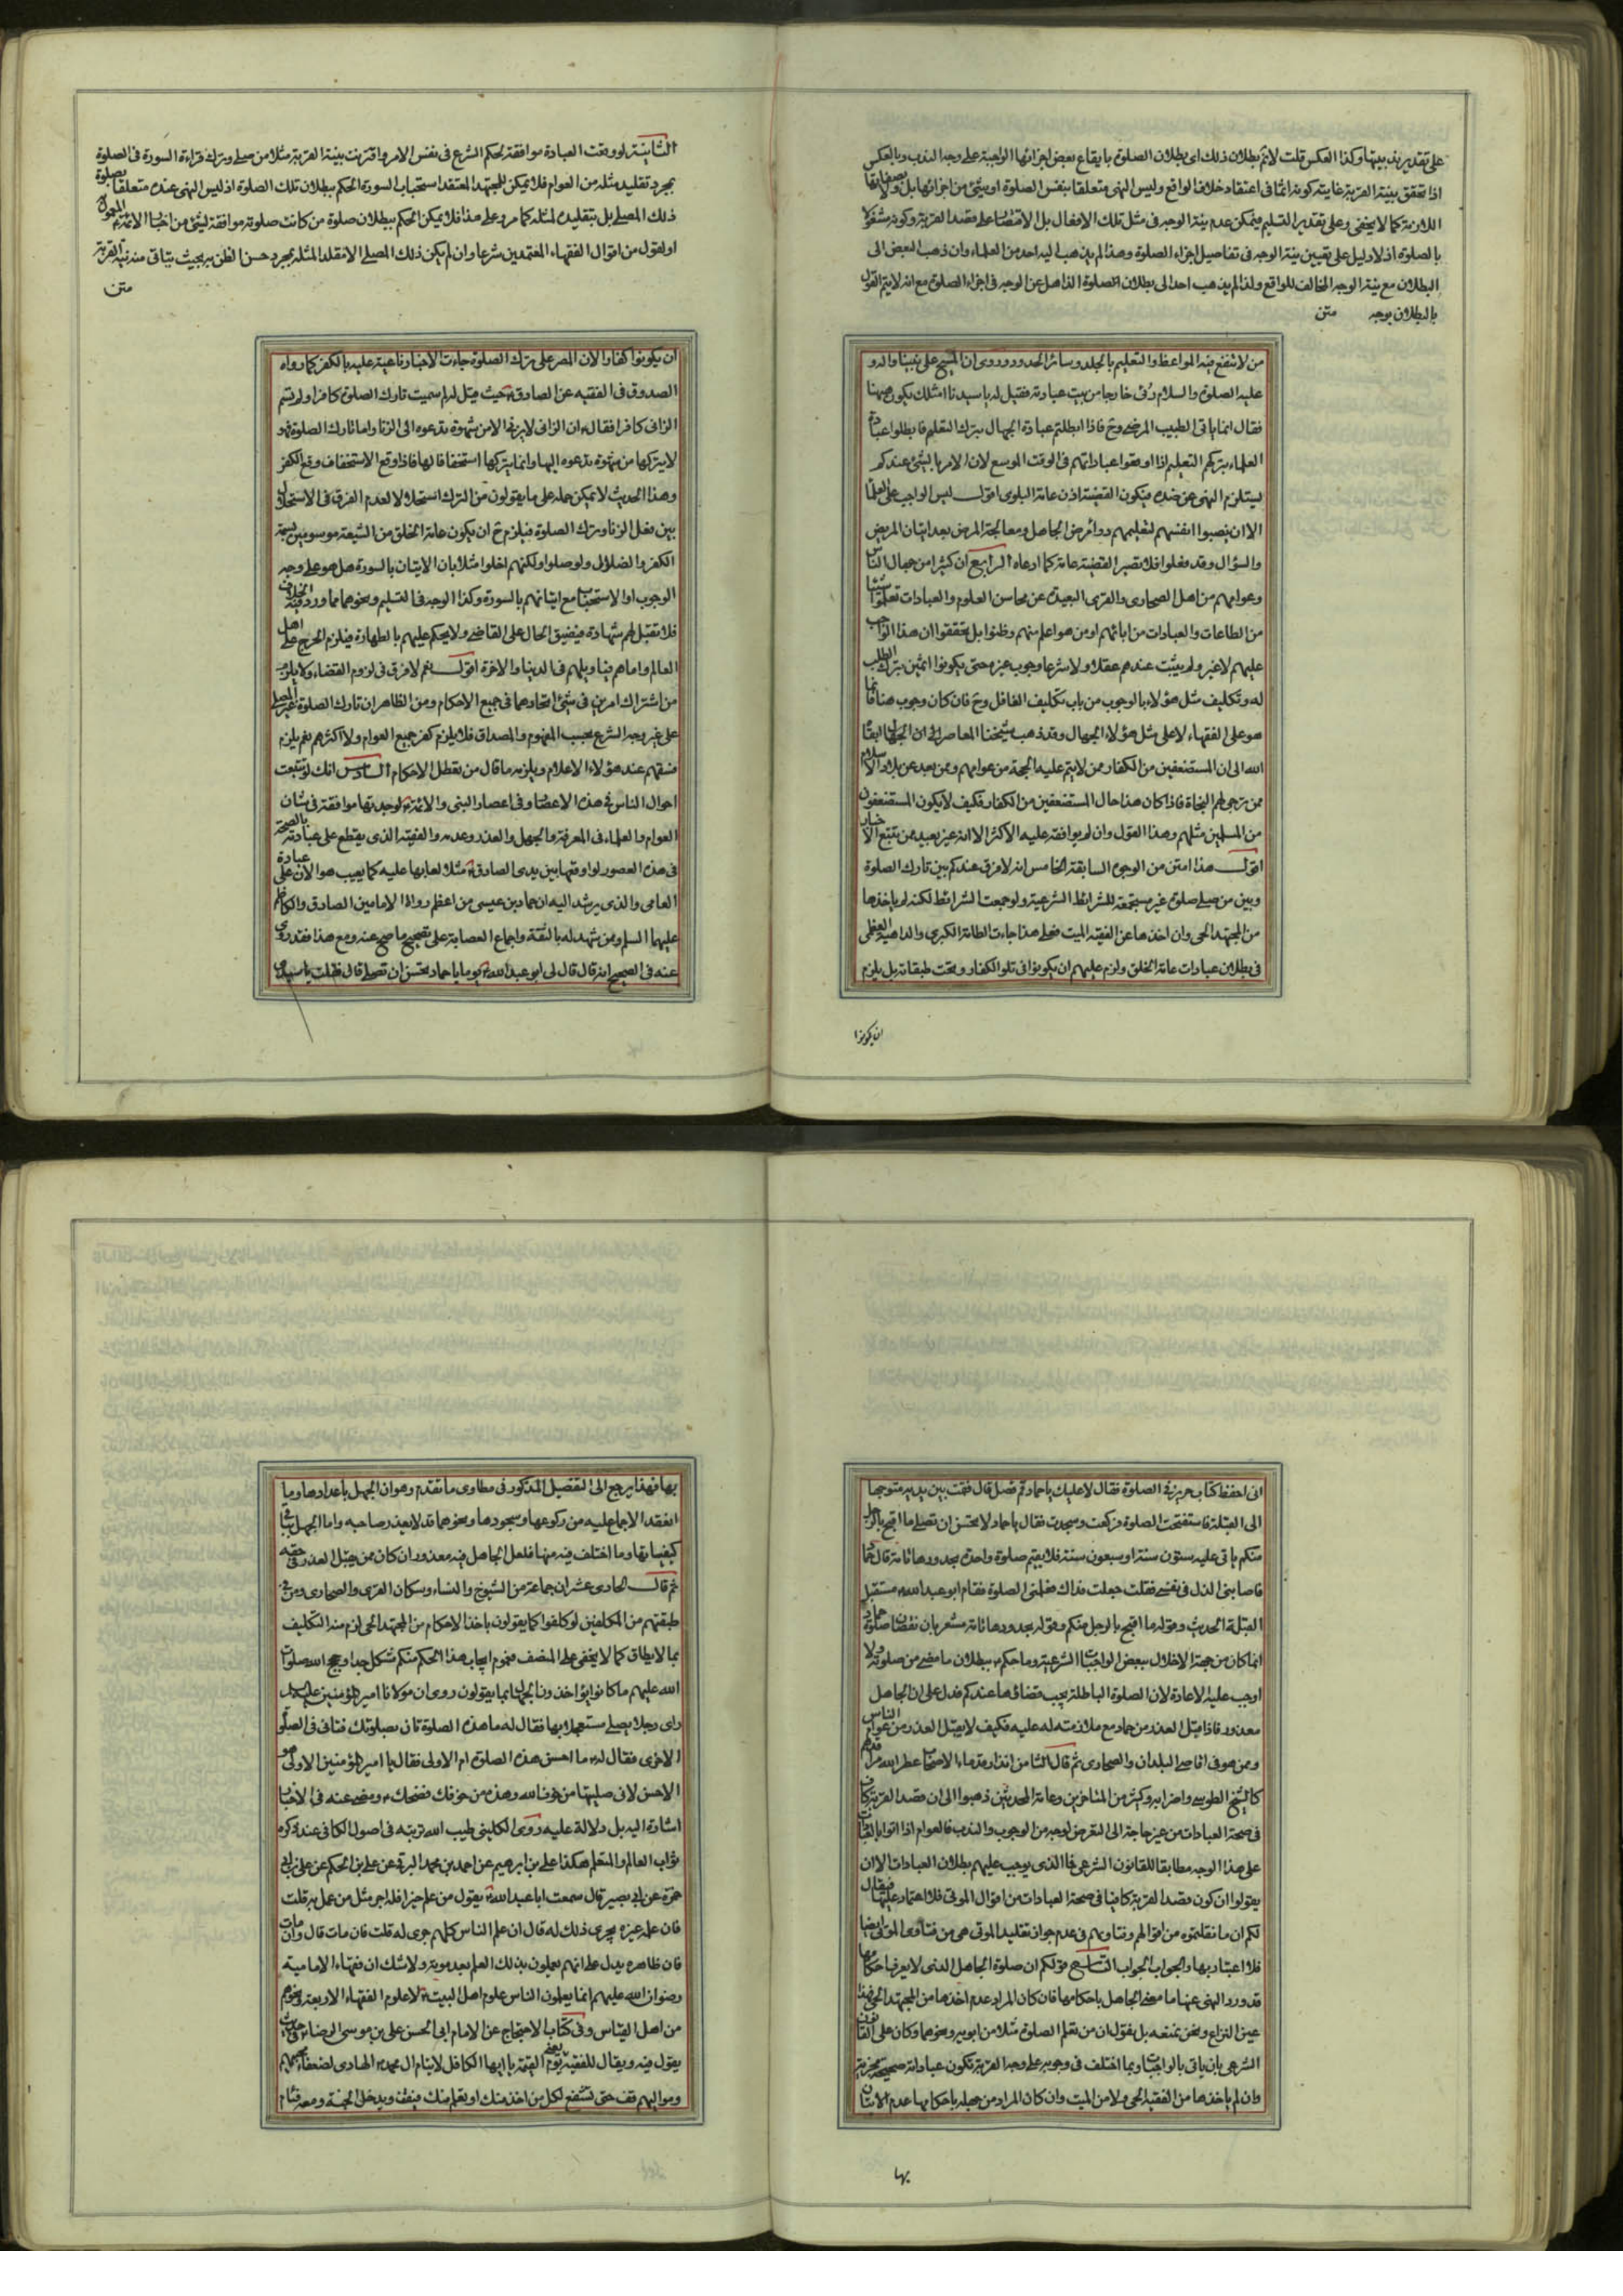 على تقدير نذر بينها وكذا العكس قلت لا نم بطلان ذلك اى بطلان الصلوة بايقاع بعض اجزائها الواجبة على وجه الندب وبالعكس
اذا تحقق بنية القربة غايته كونه اثما فى اعتقاد خلاف الواقع وليس النهى متعلقا بنفس الصلوة او بشئ من اجزائها بل ولا
اللازمة كما لا يخفى وعلى تقدير التسليم فيمكن عدم نية الوجه فى مثل تلك الافعال بل الاقتصار على قصد القربة وكونه مشغولا
بالصلوة اذ لا دليل على تعيين نية الوجه فى تفاصيل اجزاء الصلوة وهذا لم يذهب اليه احد من العلماء وان ذهب البعض الى
البطلان مع نية الوجه المخالف للواقع ولذا لم يذهب احد الى بطلان الصلوة الذاهل عن الوجه فى اجزاء الصلوة مع انه لا يتم القول
بالبطلان بوجه متن
من لا تنفع فيه المواعظ والتعليم بالجلد وسائر الحدود وروى ان المسيح على نبينا واله و
عليه الصلوة والسلام رئى خارجا من بيت عبادته فقيل له يا سيدنا امثلك يكون ههنا
فقال انما ياتى الطبيب المرضى وح فاذا ابطلتم عبادة الجهال بترك التعليم فابطلوا عبادة
العلماء بتركهم التعليم اذا اوقعوا عباداتهم فى الوقت الموسع لان الامر بالشئ عندكم
يستلزم النهى عن ضده فيكون القضية اذن عامة البلوى اقول ليس الواجب على العلما
الا ان ينصبوا انفسهم لتعليمهم ودوائر من الجاهل ومعالجة المرض بعد اتيان المريض
والسؤال وقد فعلوا فلا تصير القضية عامة كما ادعاه الرابع ان كثيرا من جهال الناس
وعوامهم من اهل الصحارى والقرى البعيدة عن محاسن العلوم والعبادات تعلموا شيئا
من الطاعات والعبادات من ابائهم او من هو اعلم منهم وظنوا بل تحققوا ان هذا الواجب
عليهم لا غير ولم يثبت عندهم عقلا ولا شرعا وجوب غيره حتى يكونوا اثمين بترك الطلب
له وتكليف مثل هؤلاء بالوجوب من باب تكليف الغافل وح فان كان وجوب هنا فانما
هو على الفقهاء لا على مثل هؤلاء الجهال وقد ذهب شيخنا المعاصر الى ان الجهال ابقاه
الله الى ان المستضعفين من الكفار ممن لا يتم عليه الحجة من عوامهم ومن بعد عن بلاد الاسلام
ممن ترجى لهم النجاة فاذا كان هذا حال المستضعفين من الكفار فكيف لا يكون المستضعفون
من المسلمين مثلهم وهذا القول وان لم يوافقه عليه الاكثر الا انه غير بعيد ممن تتبع الاخبار
اقول هذا امتن من الوجوه السابقة الخامس انه لا فرق عندكم بين تارك الصلوة
وبين من صلى صلوة غير مستجمعة للشرائط الشرعية ولو جمعت الشرائط لكنه لم ياخذها
من المجتهد الحى وان اخذها عن الفقيه الميت فعلى هذا جاءت الطامة الكبرى والداهية العظمى
فى بطلان عبادات عامة الخلق ولزم عليهم ان يكونوا فى تلو الكفار وتحت طبقاته بل يلزم
ان يكونوا
الثامنة لو وقعت العبادة موافقة لحكم الشرع فى نفس الامر واقترنت بنية القربة مثلا من صلى وترك قراءة السورة فى الصلوة
بمجرد تقليد مثله من العوام فلا يمكن للمجتهد المعتقد استحباب السورة الحكم ببطلان تلك الصلوة اذ ليس النهى عنده متعلقا بصلوة
ذلك المصلى بل بتقليده لمثله كما مر وعلى هذا فلا يمكن الحكم ببطلان صلوة من كانت صلوته موافقة لشئ من اخبار الائمة
او لقول من اقوال الفقهاء المعتمدين شرعا وان لم يكن ذلك المصلى الا مقلدا لمثله بمجرد حسن الظن به بحيث يتاتى منه نية القربة
متن
ان يكونوا كفارا لان المصر على ترك الصلوة جاءت الاخبار ناعية عليه بالكفر كما رواه
الصدوق فى الفقيه عن الصادق حيث قيل له لم سميت تارك الصلوة كافرا ولم تسم
الزانى كافرا فقال ان الزانى لا يزنى الا من شهوة تدعوه الى الزنا واما تارك الصلوة فهو
لا يتركها من شهوة تدعوه اليها وانما يتركها استخفافا لها فاذا وقع الاستخفاف وقع الكفر
وهذا الحديث لا يمكن حمله على ما يقولون من الترك استحلالا لعدم الفرق فى الاستحلال
بين فعل الزنا وترك الصلوة فيلزم ح ان يكون عامة الخلق من الشيعة موسومين بسمة
الكفر والضلال ولو صلوا ولكنهم اخلوا مثلا بان الاتيان بالسورة هل هو على وجه
الوجوب او الاستحباب مع اتيانهم بالسورة وكذا الوجه فى التسليم ونحوهما مما ورد فيه الخلاف
فلا تقبل لهم شهادة فيضيق الحال على القاضى ولا يحكم عليهم بالطهارة فيلزم الحرج على اهل
العالم واما هم فيا ويلهم فى الدنيا والاخرة اقول نعم لا فرق فى لزوم القضاء ولا يلزم
من اشتراك امرين فى شئ اتحادهما فى جميع الاحكام ومن الظاهر ان تارك الصلوة غير المصلى
على غير وجه الشرع بحسب المفهوم والمصداق فلا يلزم كفر جميع العوام ولا اكثرهم نعم يلزم
فسقهم عند هؤلاء الاعلام ويلزمه ما قال من تعطل الاحكام السادس انك لو تتبعت
احوال الناس فى هذه الاعصار وفى اعصار النبى والائمة لوجدتها موافقة فى شان
العوام والعلماء فى المعرفة والجهل والعذر وعدمه والفقيه الذى يقطع على عبادته بالصحة
فى هذه العصور لو اوقعها بين يدى الصادق مثلا لعابها عليه كما يعيب هو الان على عبادة
العامى والذى يرشد اليه ان حماد بن عيسى من اعظم رواة الامامين الصادق والكاظم
عليهما السلم وممن شهد له بالثقة واجماع العصابة على تصحيح ما صح عنه ومع هذا فقد روى
عنه فى الصحيح انه قال قال لى ابو عبد الله يوما يا حماد تحسن ان تصلى قال فقلت يا سيدى
انى احفظ كتاب حريز فى الصلوة فقال لا عليك يا حماد قم فصل قال فقمت بين يديه متوجها
الى القبلة فاستفتحت الصلوة فركعت وسجدت فقال يا حماد لا تحسن ان تصلى ما اقبح بالرجل
منكم ياتى عليه ستون سنة او سبعون سنة فلا يقيم صلوة واحدة بحدودها تامة قال حماد
فاصابنى الذل فى نفسى فقلت جعلت فداك فعلمنى الصلوة فقام ابو عبد الله مستقبل
القبلة الحديث وقوله ما اقبح بالرجل منكم وقوله بحدودها تامة مشعر بان نقصان صلوة حماد
انما كان من جهة الاخلال ببعض الواجبات الشرعية وما حكم ببطلان ما مضى من صلوته ولا
اوجب عليه الاعادة لان الصلوة الباطلة يجب قضاؤها عندكم فدل على ان الجاهل
معذور فاذا قبل العذر من حماد مع ملازمته له عليه فكيف لا يقبل العذر من عوام الناس
وممن هو فى اقاصى البلدان والصحارى ثم قال الثامن ان قدماء الاصحاب عطر الله مراقدهم
كالشيخ الطوسى واضرابه وكثير من المتاخرين وعامة المحدثين ذهبوا الى ان قصد القربة كاف
فى صحة العبادات من غير حاجة الى التعرض لوجه من الوجوب والندب فالعوام اذا اتوا بالعبادات
على هذا الوجه مطابقا للقانون الشرعى فما الذى يوجب عليهم بطلان العبادات الا ان
يقولوا ان كون قصد القربة كافيا فى صحة العبادات من اقوال الموتى فلا اعتماد عليها فيقال
لكم ان ما نقلتموه من اقوالهم وفتاويهم فى عدم جواز تقليد الموتى هى من فتاوى الموتى ايضا
فلا اعتبار بها والجواب الجواب التاسع قولكم ان صلوة الجاهل الذى لا يعرف احكامها
قد ورد النهى عنها ما معنى الجاهل باحكامها فان كان المراد عدم اخذها من المجتهد الحى فهذا
عين النزاع ونحن نمنعه بل نقول ان من تعلم الصلوة مثلا من ابويه ونحوهما وكان على القانون
الشرعى بان ياتى بالواجبات وبما اختلف فى وجوبه على وجه القربة تكون عباداته صحيحة مجزية
وان لم ياخذها من الفقيه الحى ولا من الميت وان كان المراد من جهله باحكامها عدم الاتيان
بها
بها فهذا يرجع الى التفصيل المذكور فى مطاوى ما تقدم وهو ان الجهل باعدادها وما
انعقد الاجماع عليه من ركوعها وسجودها ونحوهما قد لا يعذر صاحبه واما الجهل بباقى
كيفياتها وما اختلف فيه منها فلعل الجاهل فيه معذور ان كان ممن قبل العذر فى حقه
ثم قال الحادى عشر ان جماعة من الشيوخ والنساء وسكان القرى والصحارى ومن فى
طبقتهم من المكلفين لو كلفوا كما يقولون باخذ الاحكام من المجتهد الحى لزم منه التكليف
بما لا يطاق كما لا يخفى على المنصف فنعوم ايجاب هذا الحكم منكم مشكل جدا وحجج الله صلوات
الله عليهم ما كانوا يؤاخذون الجهال بما يقولون روى ان مولانا امير المؤمنين عليه السلام
راى رجلا يصلى مستعجلا بها فقال له ما هذه الصلوة تان بصلوتك فتانى فى الصلوة
الاخرى فقال له ما احسن هذه الصلوة ام الاولى فقال يا امير المؤمنين الاولى هو
الاحسن لانى صليتها من خوف الله وهذه من خوفك فضحك ومضى عنه فى الاخبار
اشارة اليه بل دلالة عليه روى الكلينى طيب الله تربته فى اصول الكافى عند ذكره
ثواب العالم والمتعلم هكذا على بن ابرهيم عن احمد بن محمد البرقى عن على بن الحكم عن على بن ابى
حمزة عن ابى بصير قال سمعت ابا عبد الله يقول من علم خيرا فله اجر مثل من عمل به قلت
فان علمه غيره يجرى ذلك له قال ان علم الناس كلهم جرى له قلت فان مات قال وان مات
فان ظاهره يدل على انهم يعملون بذلك العلم بعد موته ولا شك ان فقهاء الامامية
رضوان الله عليهم انما يعلمون الناس علوم اهل البيت لا علوم الفقهاء الاربعة ونحوهم
من اهل القياس وفى كتاب الاحتجاج عن الامام ابى الحسن على بن موسى الرضا فى حديث
يقول فيه ويقال للفقيه يوم القيمة يا ايها الكافل لايتام ال محمد الهادى لضعفاء محبيهم
ومواليهم قف حتى تشفع لكل من اخذ منك او تعلم منك فيقف ويدخل الجنة ومعه فئام